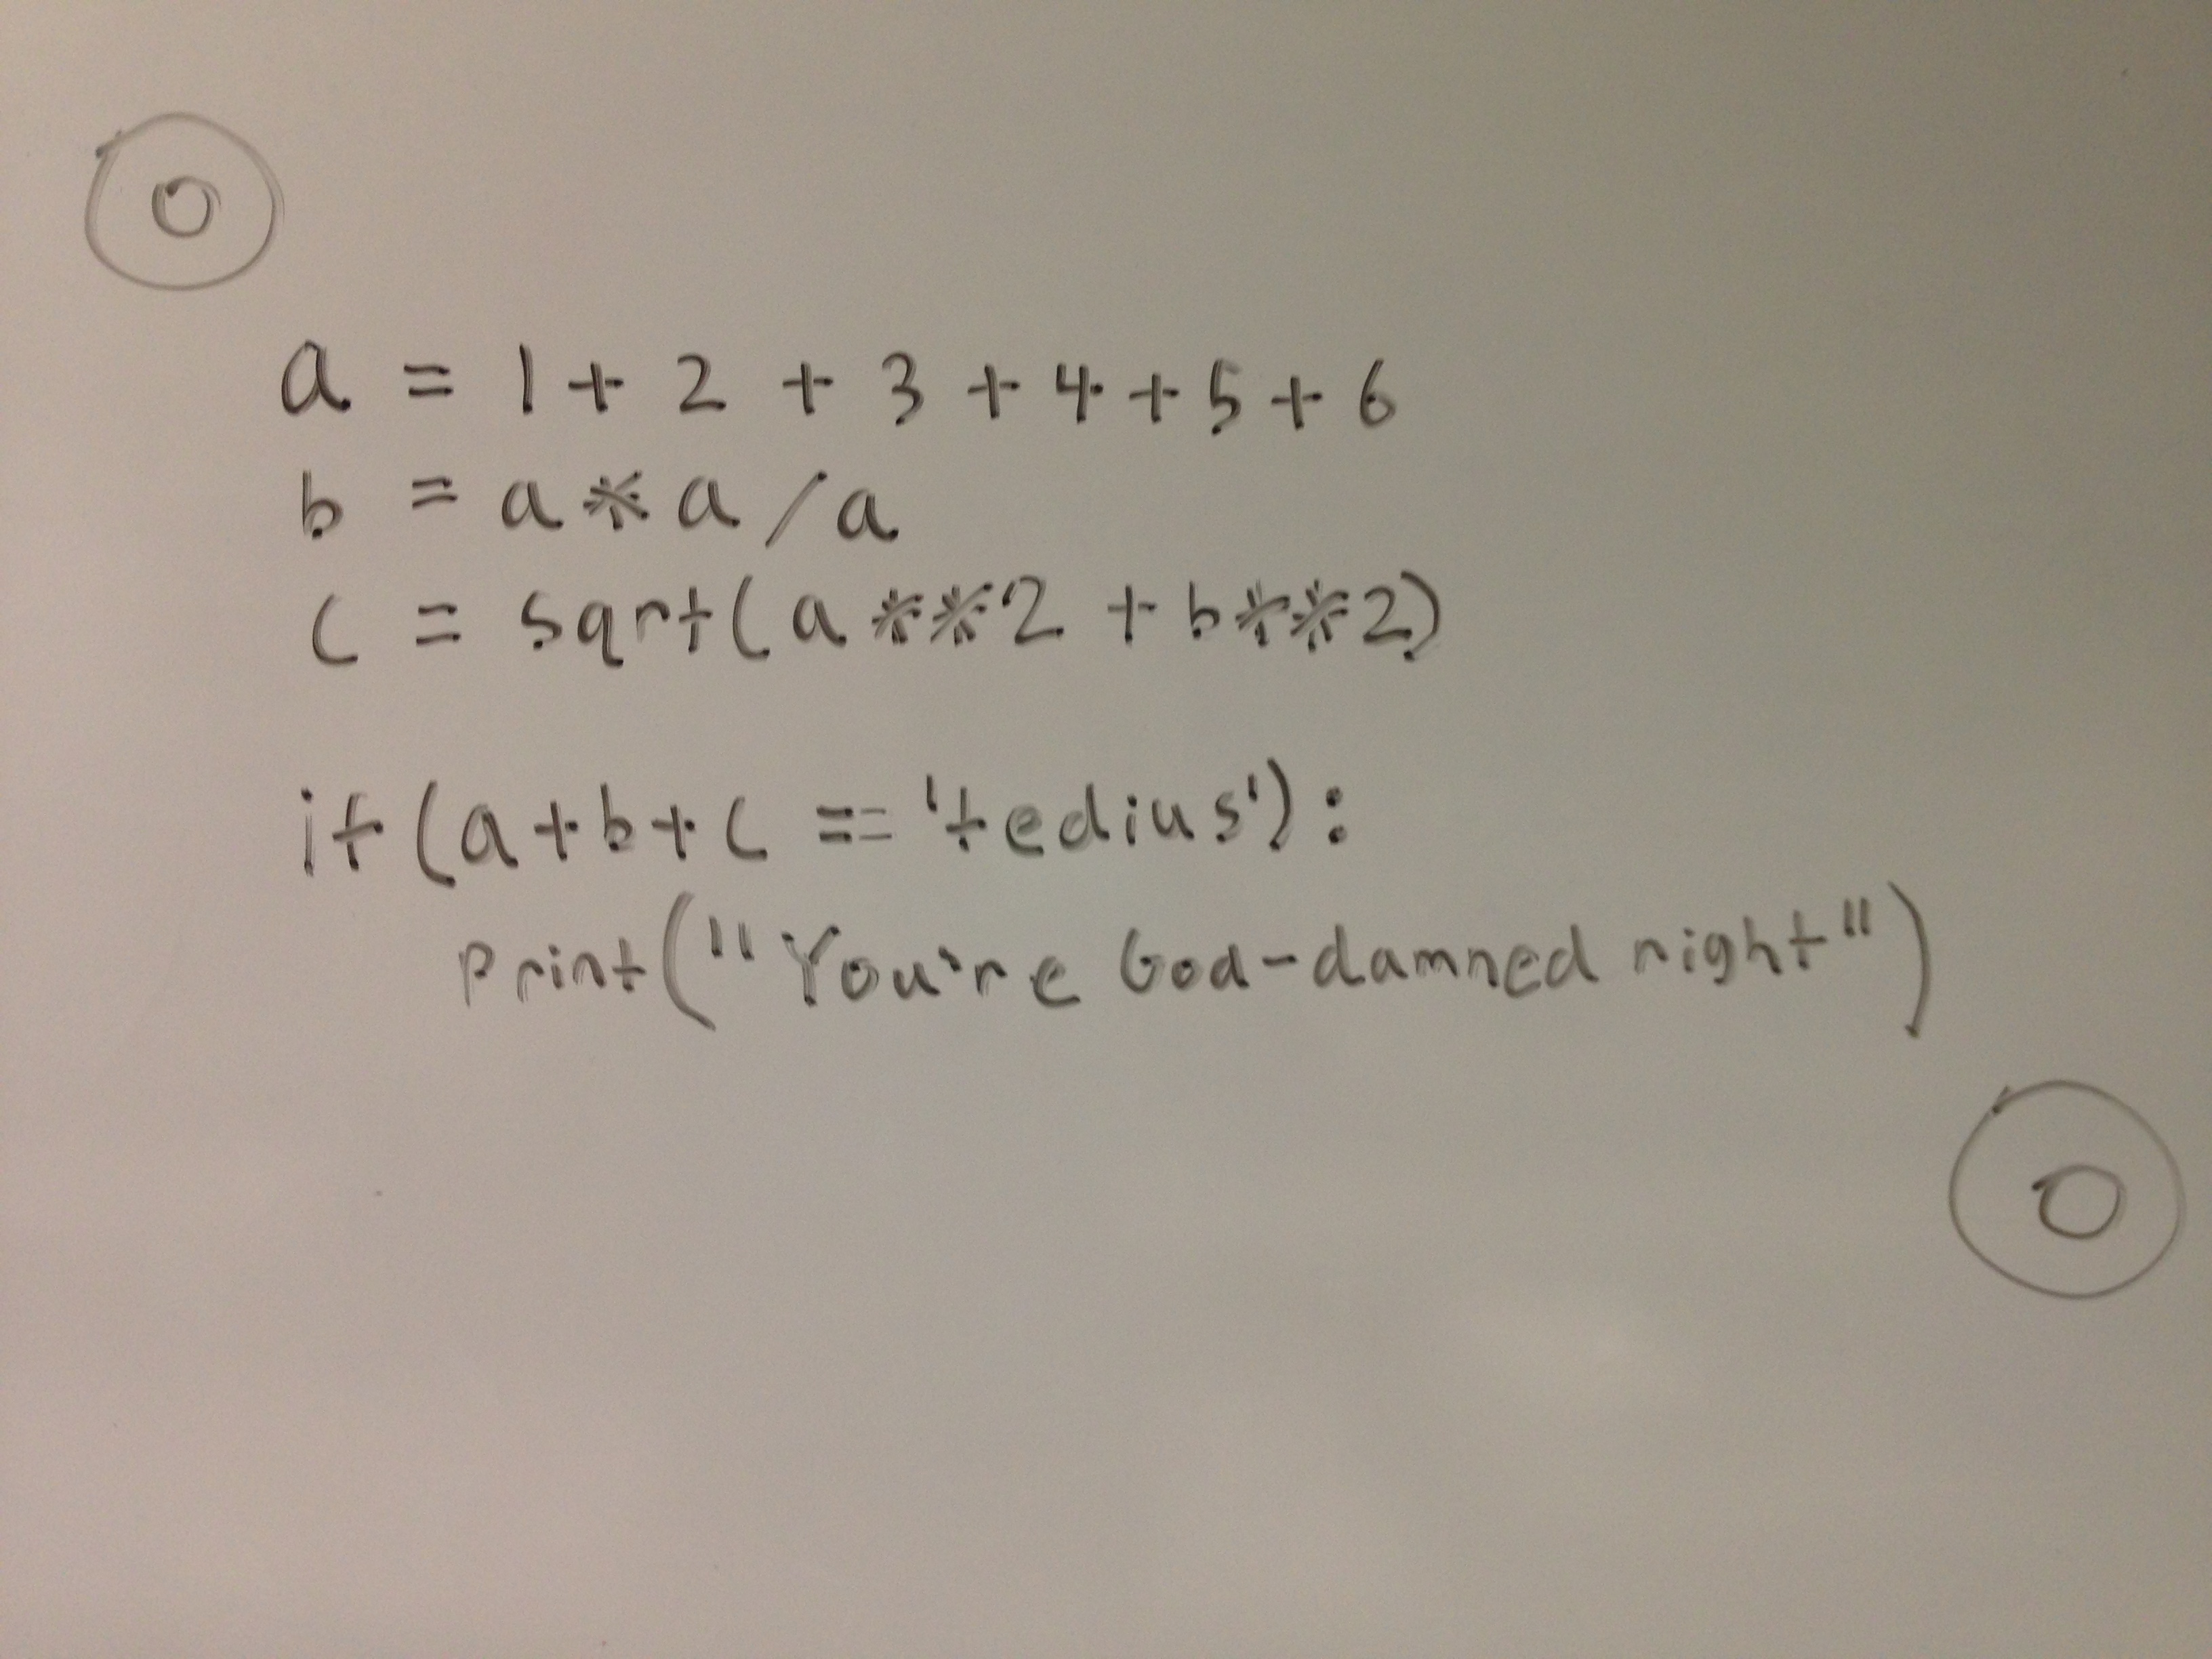 O
a = 1 + 2 + 3 + 4 + 5 + 6
b = a * a / a
c = sqrt(a**2 + b**2)
if (a+b+c == 'tedius'):
print("You're God-damned right")
O